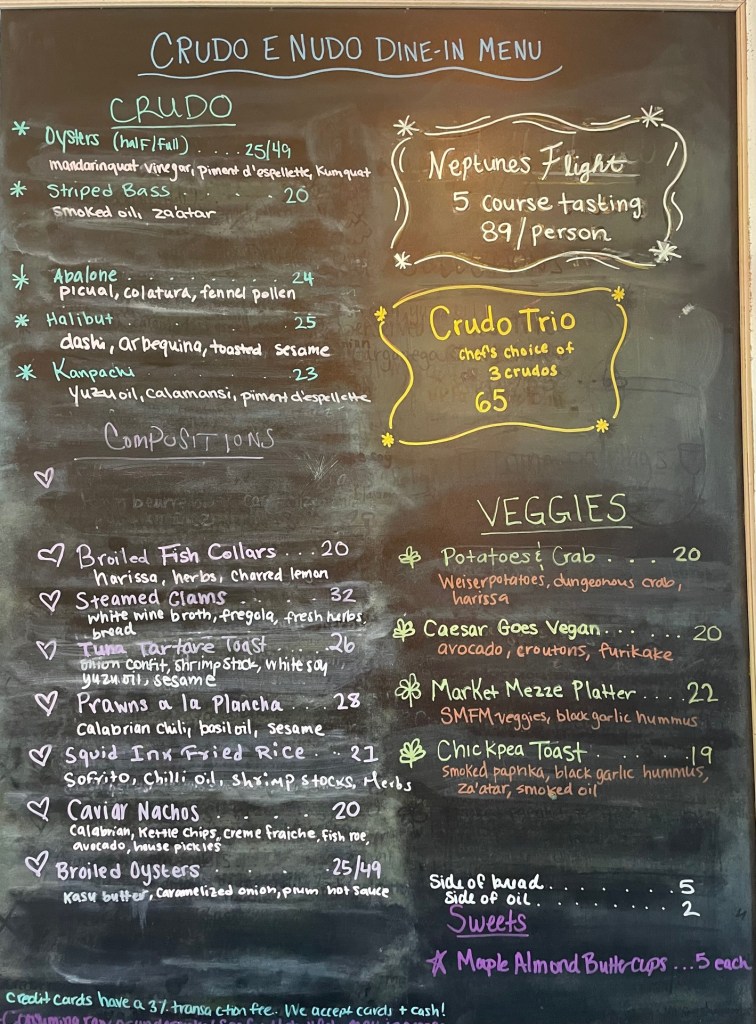 CRUDO E NUDO DINE-IN MENU
CRUDO
Oysters (half/full) ....25/49
mandarinquat vinegar, piment d'espellette, kumquat
Striped Bass . . . . 20
smoked oil, za'atar
Abalone . . . . . . . . . . 24
picual, colatura, fennel pollen
Halibut . . . . . . . . . 25
dashi, arbequina, toasted sesame
Kanpachi . . . . . . . 23
yuzu oil, calamansi, piment d'espellette
COMPOSITIONS
Broiled Fish Collars . . . 20
harissa, herbs, charred lemon
Steamed Clams . . . . . 32
white wine broth, fregola, fresh herbs,
bread
Tuna Tartare Toast . . . . 26
onion confit, shrimp stock, white soy
yuzu oil, sesame
Prawns a la Plancha . . . 28
Calabrian Chili, basil oil, sesame
Squid Ink Fried Rice . . . 21
Sofrito, Chilli oil, shrimp stocks, Herbs
Caviar Nachos . . . . . 20
Calabrian, Kettle Chips, creme fraiche, fish roe,
avocado, house pickles
Broiled Oysters . . . . . 25/49
Kasu butter, caramelized onion, plum hot sauce
Neptunes Flight
5 course tasting
89/Person
Crudo Trio
chef's choice of
3 crudos
65
VEGGIES
Potatoes & Crab . . . . 20
Weiser potatoes, dungeonous crab,
harissa
Caesar Goes Vegan . . . . . . 20
avocado, croutons, furikake
Market Mezze Platter . . . . 22
SMFM veggies, black garlic hummus
Chickpea Toast . . . . . . . 19
smoked paprika, black garlic hummus,
za'atar, smoked oil
Side of bread . . . . . . . . . 5
Side of oil . . . . . . . . . . 2
Sweets
Maple Almond Butter Cups ...5 each
Credit cards have a 3% transaction fee. We accept cards + cash!
Consuming raw or undercooked